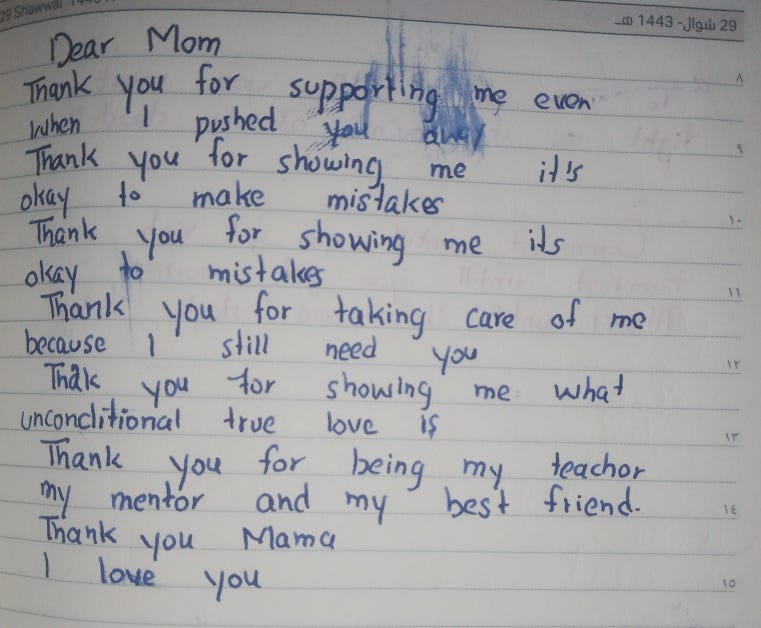 29 Shawwal
29 شوال- 1443 هـ
Dear Mom
Thank you for supporting me even
٨
when I pushed you away
٩
Thank you for showing me it's
okay to make mistakes
١٠
Thank you for showing me its
okay to mistakes
١١
Thank you for taking care of me
because I still need you
١٢
Thak you for showing me what
unconditional true love is
١٣
Thank you for being my teachor
my mentor and my best friend.
١٤
Thank you Mama
I love you
١٥